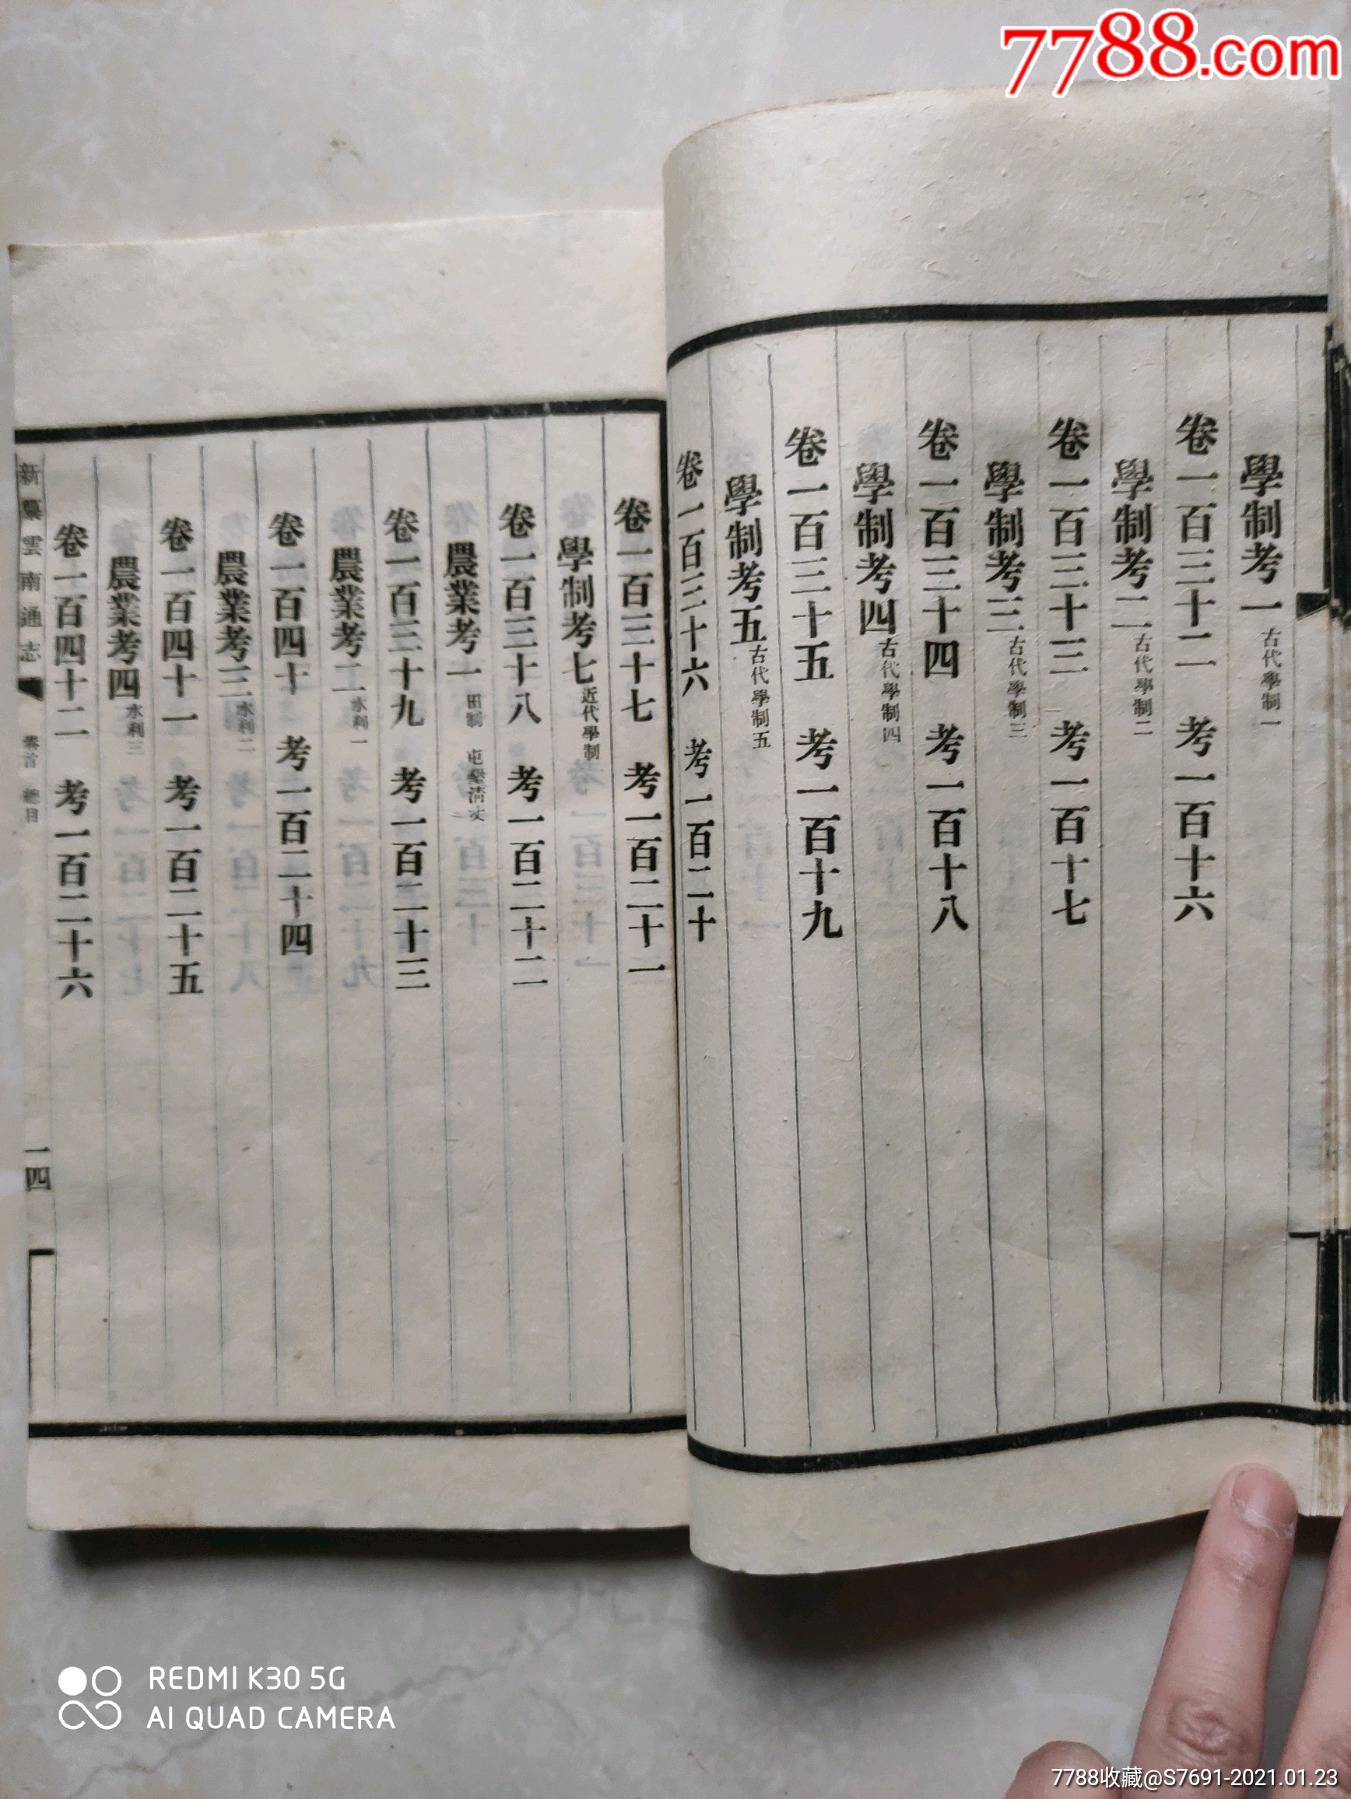 7788.com
學制考一 古代學制一
卷一百三十二 考一百十六
學制考二 古代學制二
卷一百三十三 考一百十七
學制考三 古代學制三
卷一百三十四 考一百十八
學制考四 古代學制四
卷一百三十五 考一百十九
學制考五 古代學制五
卷一百三十六 考一百二十
卷一百三十七 考一百二十一
學制考七 近代學制
卷一百三十八 考一百二十二
農業考一 田制 屯墾清丈
卷一百三十九 考一百二十三
農業考二 水利一
卷一百四十 考一百二十四
農業考三 水利二
卷一百四十一 考一百二十五
農業考四 水利三
卷一百四十二 考一百二十六
新纂雲南通志 卷首 總目 一四
REDMI K30 5G
AI QUAD CAMERA
7788收藏@S7691-2021.01.23